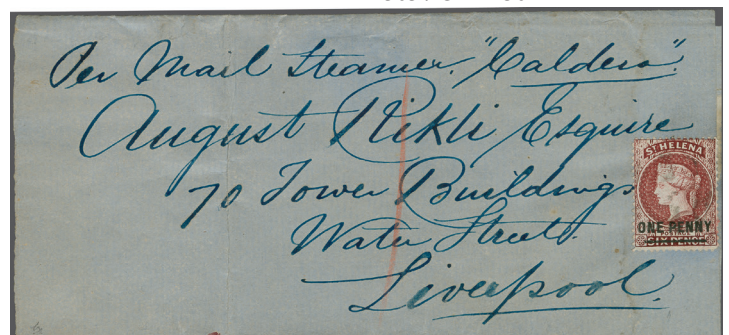 Per Mail Steamer. "Caldera".
August Rikli Esquire
70 Tower Buildings
Water Street.
Liverpool.
ST HELENA
ONE PENNY
POSTAGE
SIX PENCE